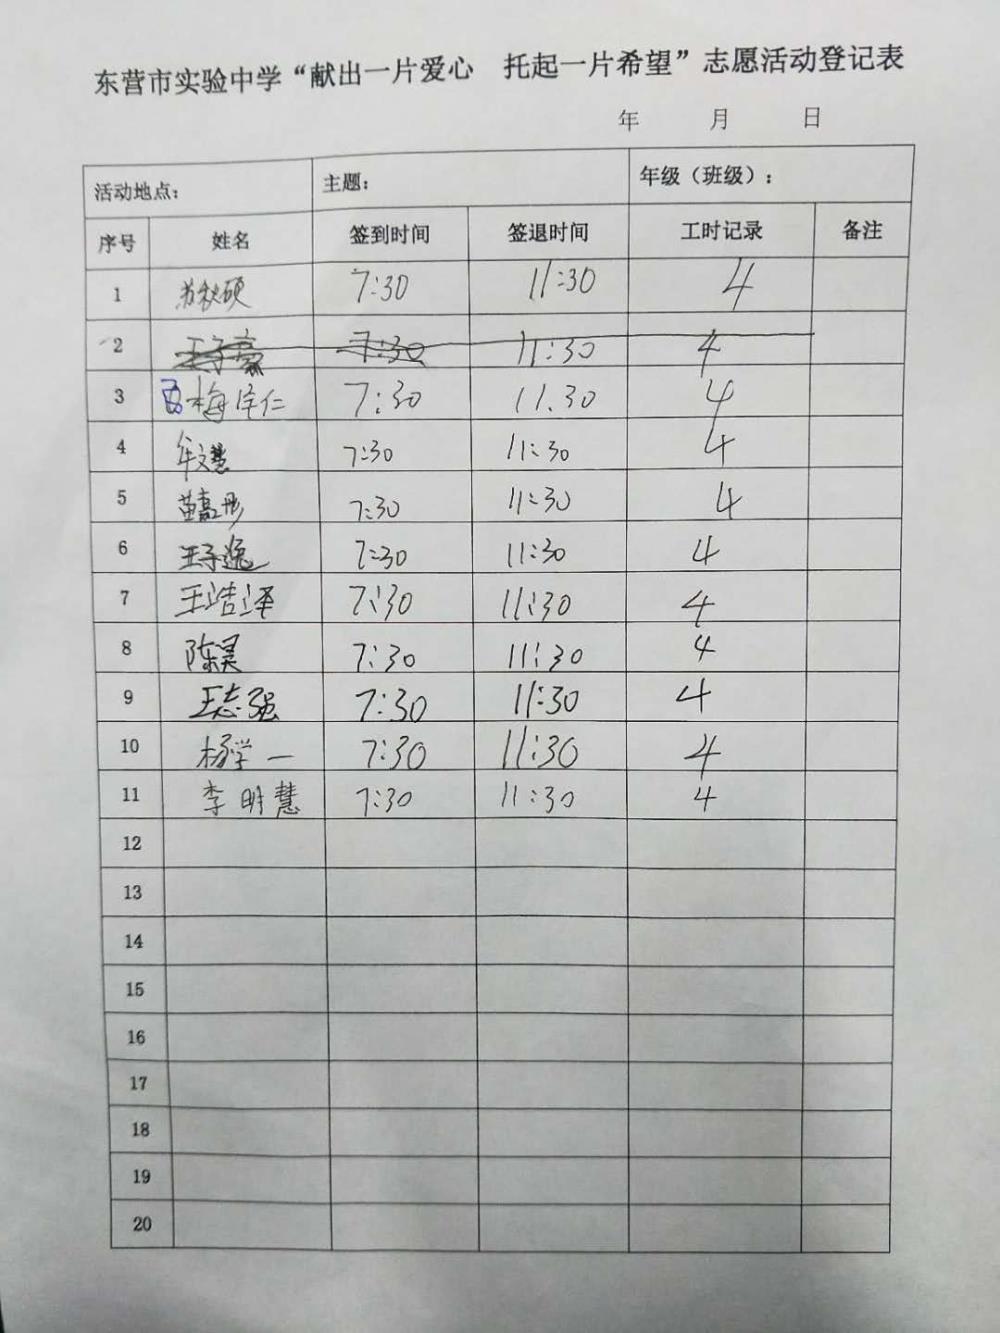 东营市实验中学“献出一片爱心 托起一片希望”志愿活动登记表
年 月 日
活动地点： 主题： 年级（班级）：
序号 姓名 签到时间 签退时间 工时记录 备注
1 苏秋硕 7:30 11:30 4
2 王子豪 7:30 11:30 4
3 梅泽仁 7:30 11.30 4
4 牟文慧 7:30 11:30 4
5 苗嘉彤 7:30 11:30 4
6 王子逸 7:30 11:30 4
7 王浩泽 7:30 11:30 4
8 陈昊 7:30 11:30 4
9 王志强 7:30 11:30 4
10 杨学一 7:30 11:30 4
11 李明慧 7:30 11:30 4
12
13
14
15
16
17
18
19
20